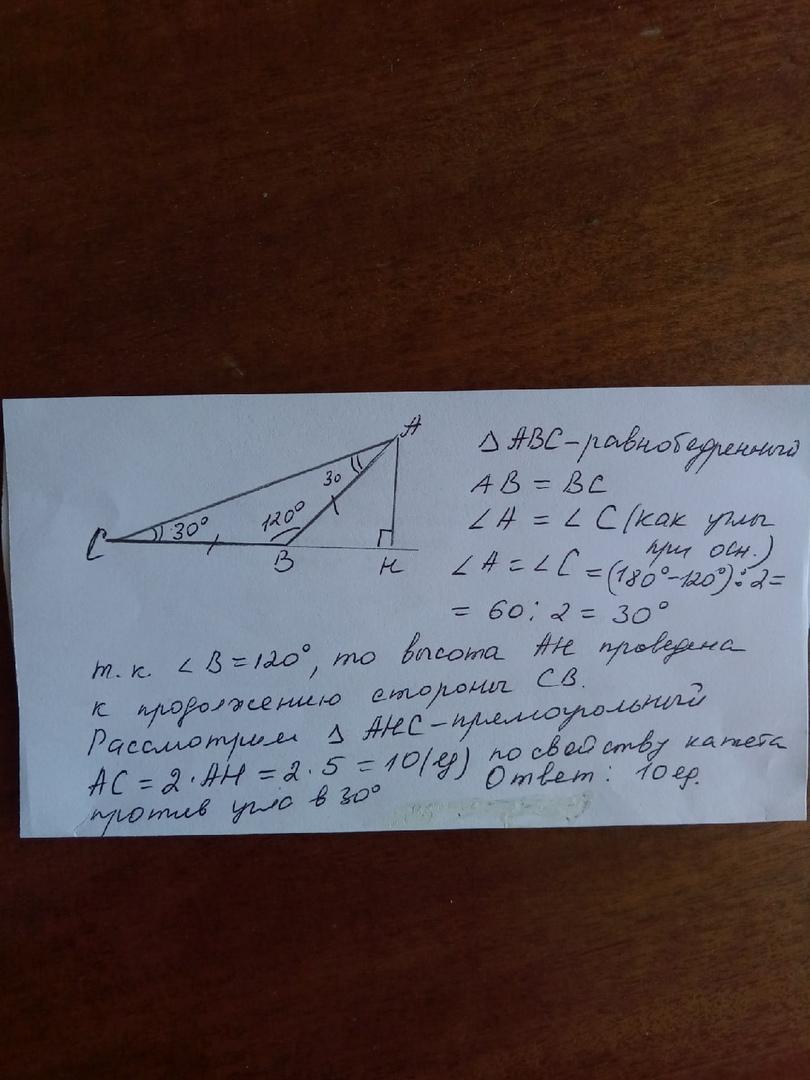 A
30
30°
120°
C
B
H
Δ ABC - равнобедренный
AB = BC
∠A = ∠C (как углы
при осн.)
∠A = ∠C = (180° - 120°) : 2 =
= 60 : 2 = 30°
т.к. ∠B = 120°, то высота AH проведена
к продолжению стороны CB.
Рассмотрим Δ AHC - прямоугольный
AC = 2 · AH = 2 · 5 = 10 (ед) по свойству катета
против угла в 30°
Ответ: 10 ед.